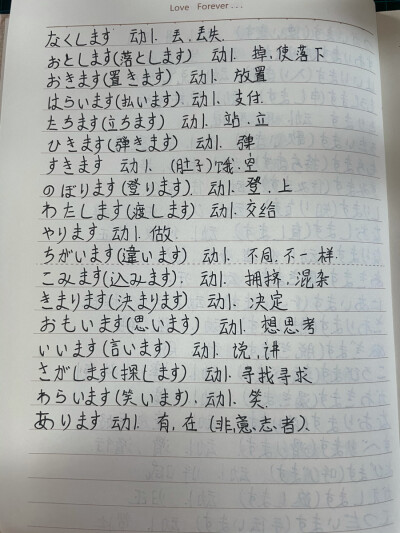 Love Forever...
なくします 动1. 丢、丢失.
おとします(落とします) 动1. 掉,使落下
おきます(置きます) 动1. 放置
はらいます(払います) 动1. 支付.
たちます(立ちます) 动1. 站.立
ひきます(弾きます) 动1. 弹
すきます 动1. (肚子)饿.空
のぼります(登ります). 动1. 登.上
わたします(渡します) 动1.交给
やります 动1.做.
ちがいます(違います) 动1. 不同.不一样.
こみます(込みます). 动1. 拥挤.混杂
きまります(決まります) 动1. 决定
おもいます(思います) 动1. 想思考
いいます(言います) 动1. 说,讲
さがします(探します) 动1.寻找寻求
わらいます(笑います). 动1. 笑.
あります 动1. 有,在 (非意志者).